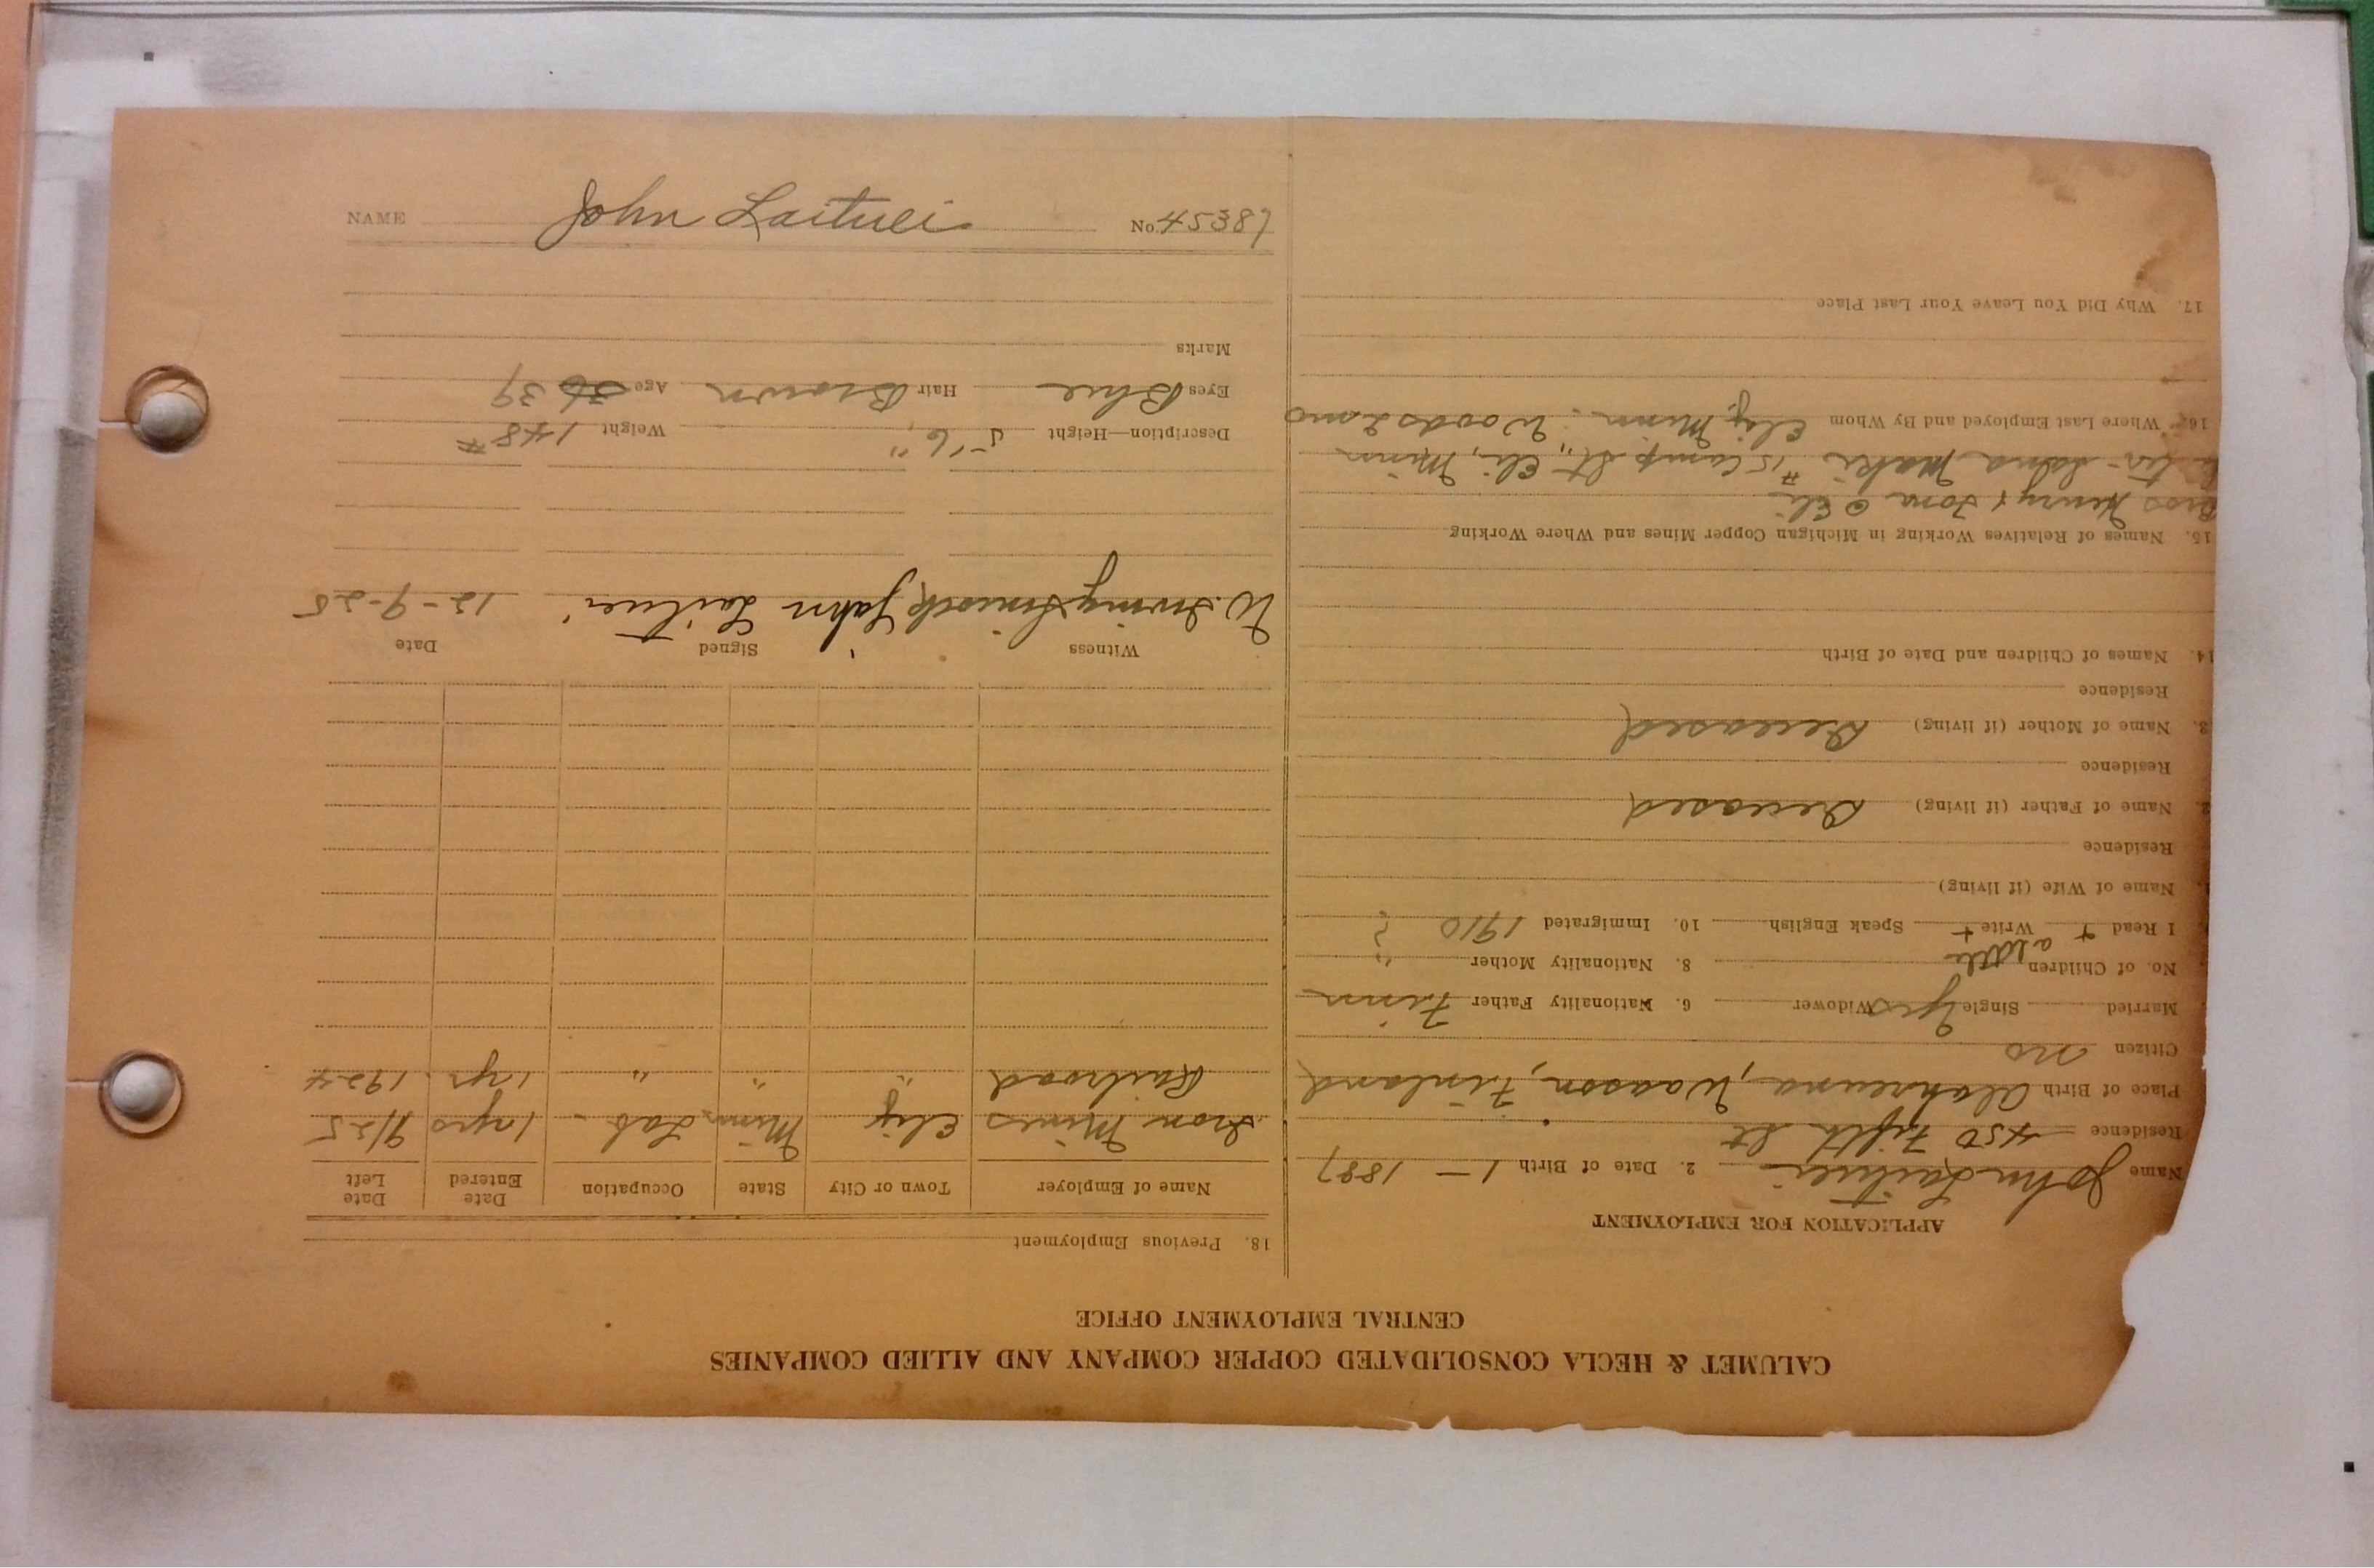 NAME John Laituei No. 45387
CALUMET & HECLA CONSOLIDATED COPPER COMPANY AND ALLIED COMPANIES
CENTRAL EMPLOYMENT OFFICE
APPLICATION FOR EMPLOYMENT
Name John Laituei 2. Date of Birth 1 - 1887
Residence 450 Fifth St
Place of Birth Waason, Finland
Citizen no
Married Single yes Widower 6. Nationality Father Finn
No. of Children 8. Nationality Mother "
a little
I Read + Write + Speak English 10. Immigrated 1910 ?
Name of Wife (if living)
Residence
2. Name of Father (if living) Deceased
Residence
3. Name of Mother (if living) Deceased
Residence
14. Names of Children and Date of Birth
15. Names of Relatives Working in Michigan Copper Mines and Where Working
Bros Henry &
Maki #15 Camp St., Eli, Minn
16. Where Last Employed and By Whom Ely, Minn. Woods
17. Why Did You Leave Your Last Place
18. Previous Employment
Name of Employer Town or City State Occupation Date Entered Date Left
Iron Mines Ely Minn. Lab - 1 yrs 9/25
Railroad " " " 1 yr. 1924
Witness Signed Date
W. Irving John Laituei 12-9-25
Description—Height 5' 6" Weight 148 #
Eyes Blue Hair Brown Age 36 39
Marks